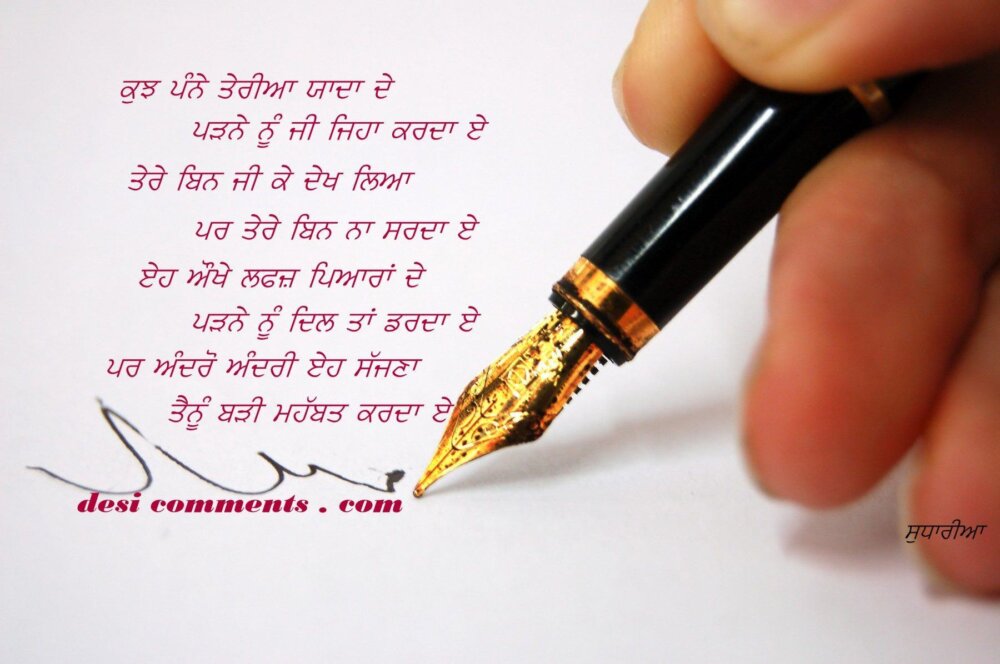 ਕੁਝ ਪੰਨੇ ਤੇਰੀਆ ਯਾਦਾ ਦੇ
ਪੜਨੇ ਨੂੰ ਜੀ ਜਿਹਾ ਕਰਦਾ ਏ
ਤੇਰੇ ਬਿਨ ਜੀ ਕੇ ਦੇਖ ਲਿਆ
ਪਰ ਤੇਰੇ ਬਿਨ ਨਾ ਸਰਦਾ ਏ
ਏਹ ਔਖੇ ਲਫਜ਼ ਪਿਆਰਾਂ ਦੇ
ਪੜਨੇ ਨੂੰ ਦਿਲ ਤਾਂ ਡਰਦਾ ਏ
ਪਰ ਅੰਦਰੋ ਅੰਦਰੀ ਏਹ ਸੱਜਣਾ
ਤੈਨੂੰ ਬੜੀ ਮਹੱਬਤ ਕਰਦਾ ਏ
desi comments . com
ਸੁਧਾਰੀਆ